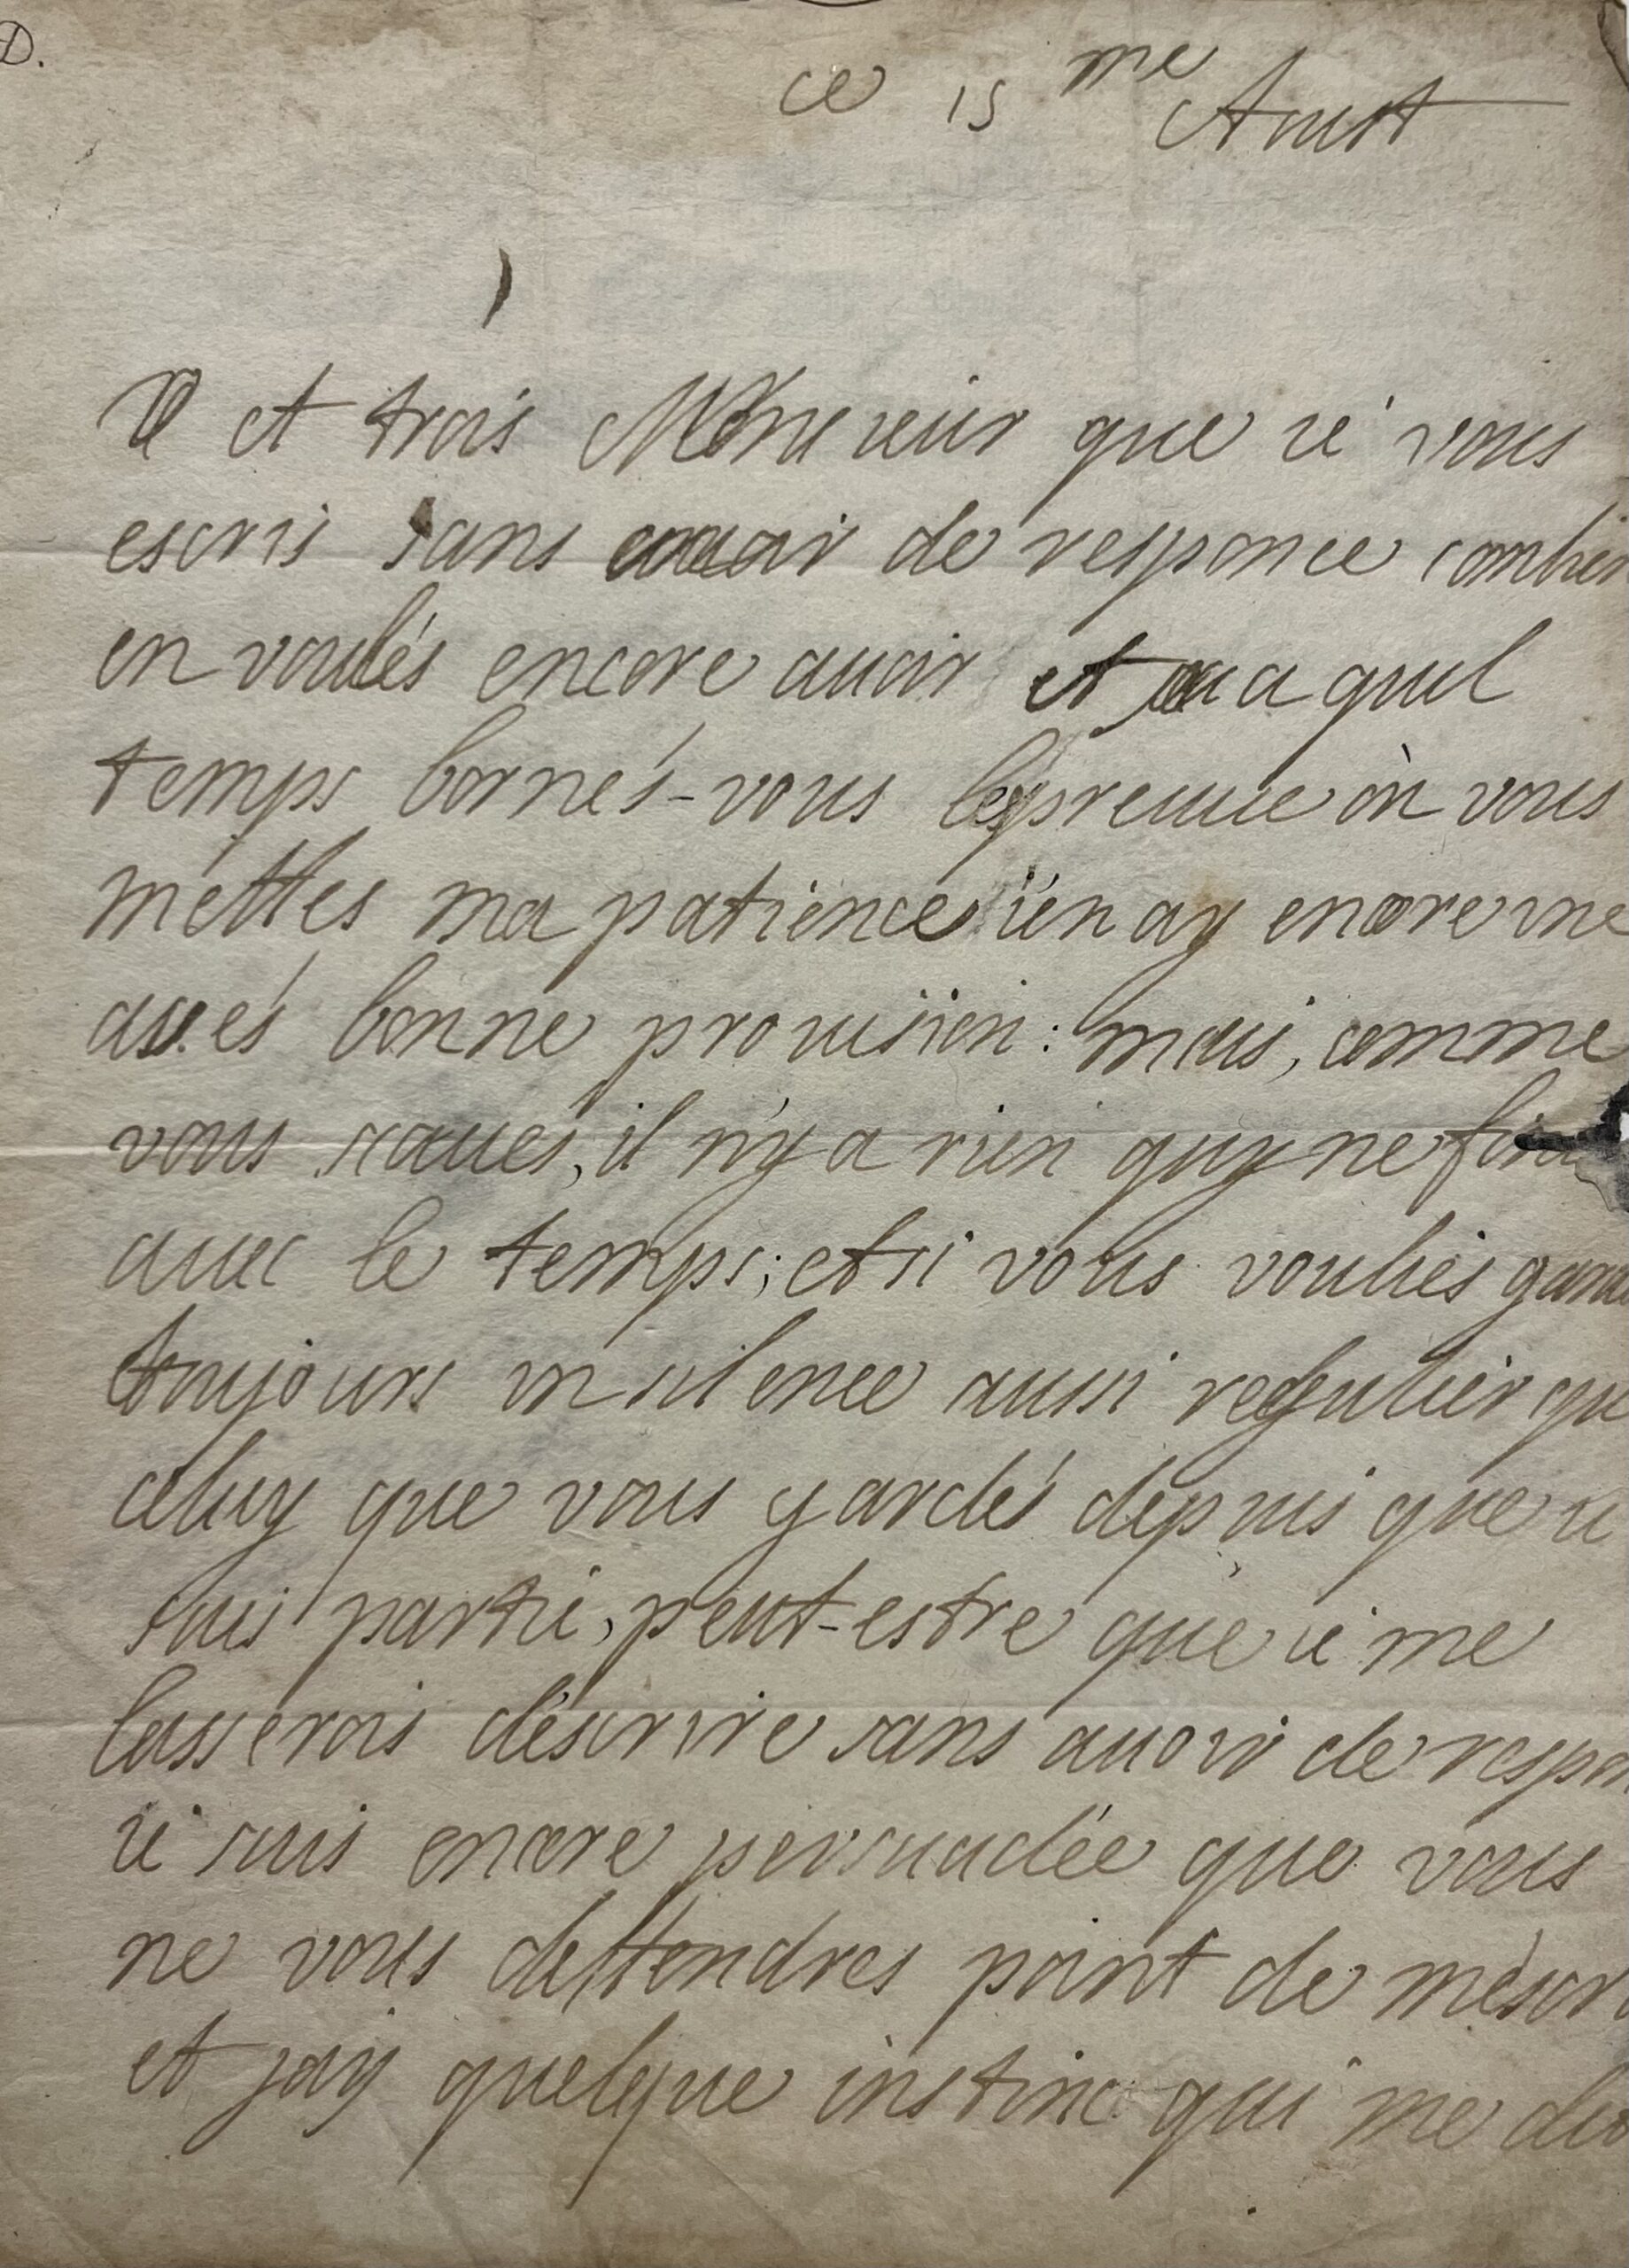 D.
ce 15 me Aust
et trois Monsieur que ie vous
escris sans auoir de responce combien
en voulés encore auoir et a quel
temps bornés-vous l'espreuue où vous
mettes ma patience i'en ay encore vne
assés bonne prouision : mais, comme
vous scaués, il n'y a rien quy ne
auec le temps; et si vous vouliés
toujours vn silence aussi regulier qu
celuy que vous gardés depuis que ie
suis partie, peut-estre que ie me
lasserois d'escrire sans auoir de respon
ie suis encore persuadée que vous
ne vous deffendres point de m'escri
et jay quelque instinc qui me dit